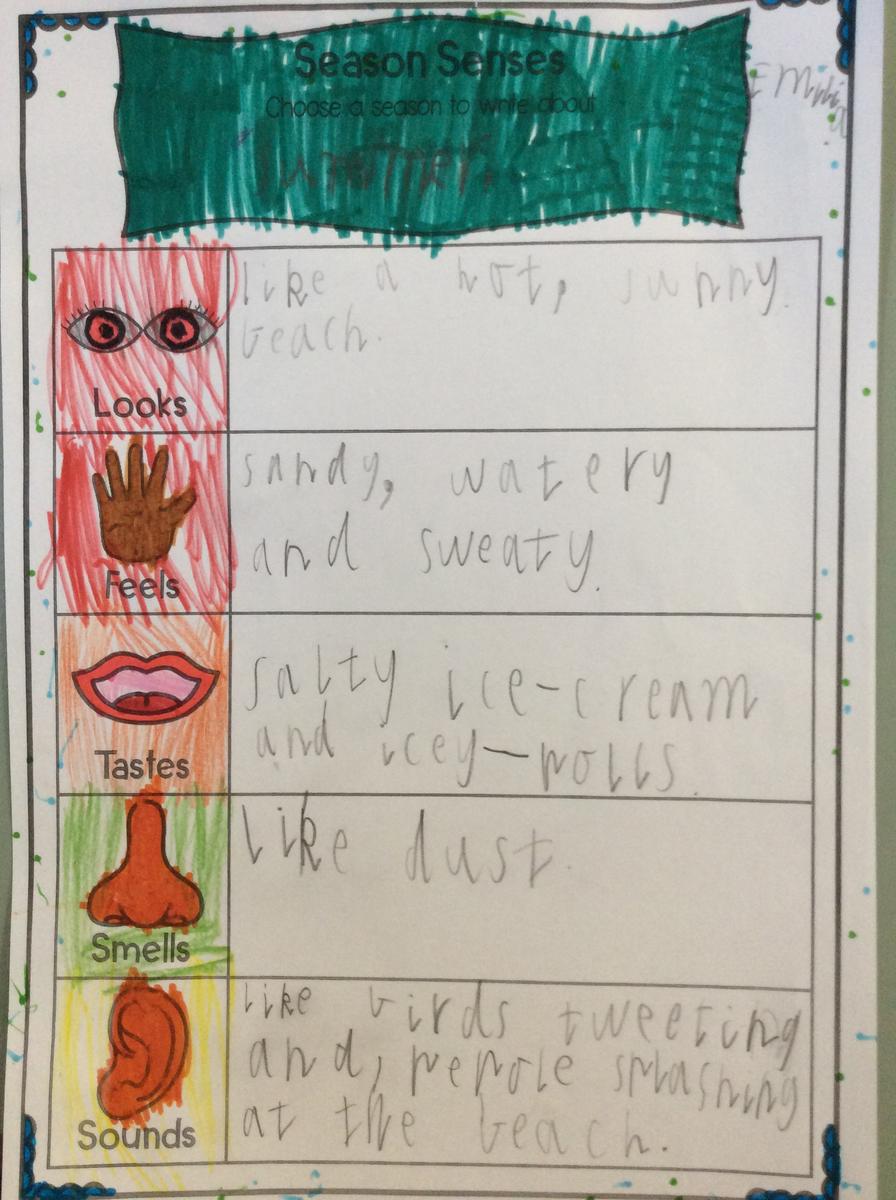 Season Senses
Choose a season to write about
Summer.
Emilia
like a hot, sunny.
beach.
Looks
sandy, watery
and sweaty.
Feels
salty ice-cream
and icey-polls.
Tastes
like dust.
Smells
like birds tweeting
and, pepole splashing
at the beach.
Sounds